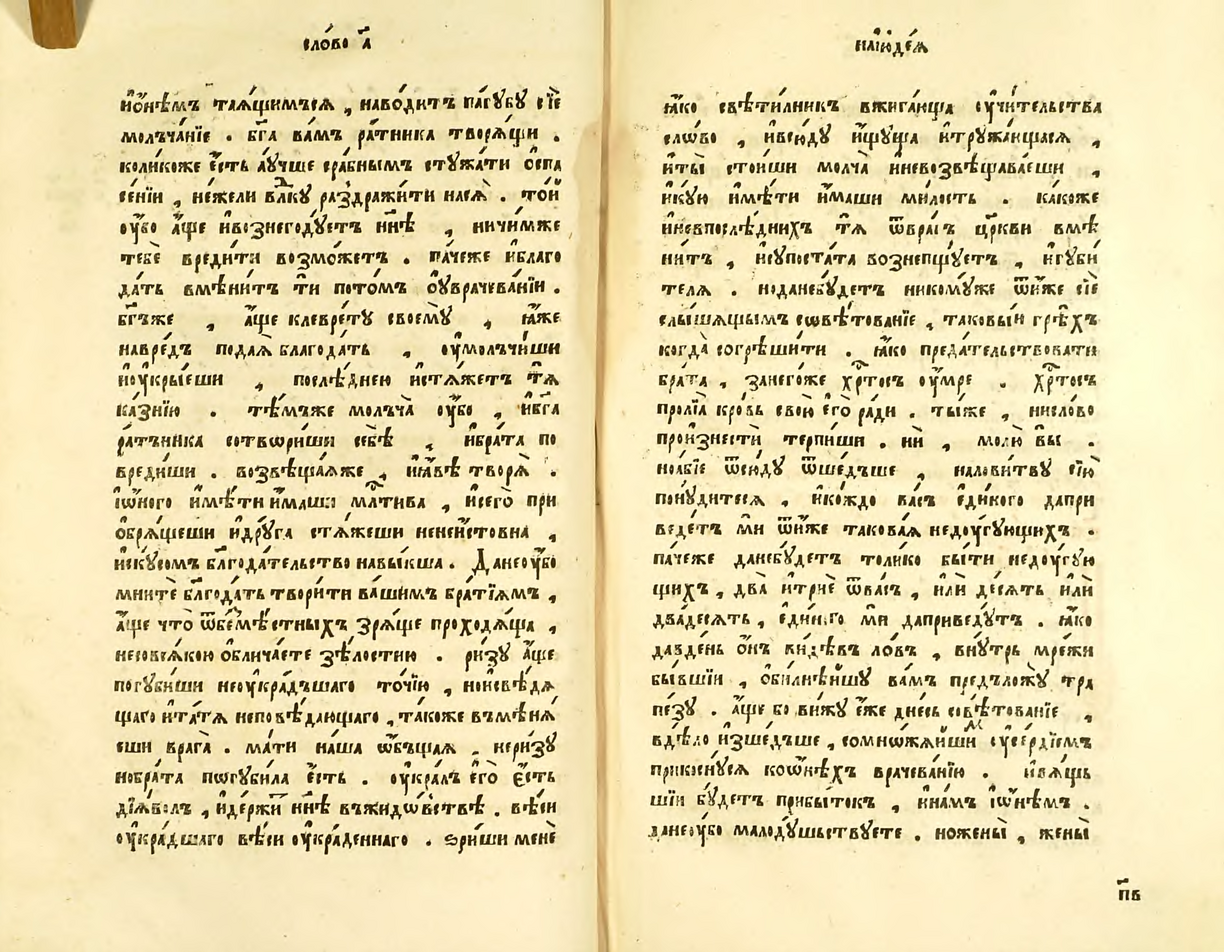 сло́во а҃
йѻ҆нѣ́мъ таѧ́щимъсѧ , наво́дитъ па́гꙋбꙋ сїѐ
молъча́нїе . бг҃а ва́мъ ра́тника творѧ́щи .
коли́коже є҆́сть лꙋ́чше срабны́мъ стꙋжа́ти ѻ҆спа
се́нїи , не́жели влⷣкꙋ раздражи́ти насѧ̀ . то́й
ᲂу҆́бо а҆́ще йвознегодꙋ́етъ нн҃ѣ , ничи́мже
тебѐ вреди́ти возмо́жетъ . па́чеже йбл҃аго
да́ть вмѣни́тъ ти пото́мъ ѻ҆увра́чеванїи .
бг҃ъже , а҆́ще клевре́тꙋ своемꙋ̀ , ꙗ҆́же
навре́дъ пода́ѧ благода́ть , ᲂу҆молъчи́ши
йᲂу҆кры́еши , послѣ́днею йстѧ́жетъ тѧ̀
ка́знїю . тѣ́мъже молъча̀ ᲂу҆́бо , йбг҃а
ра́тъника сотвори́ши себѣ̀ , йбра́та по
вреди́ши . возвѣща́ѧже , йꙗ҆́вѣ творѧ̀ .
їѻ҆ного и҆мѣ́ти и҆́маши мл҃тива , йсего̀ при
ѻ҆брѧ́щеши йдрꙋ́га стѧ́жеши ненеи́стовна ,
йскꙋсомъ бл҃года́тельство навы́кша . Данеᲂу҆́бо
мни́те бл҃года́ть твори́ти ва́шимъ бра́тїѧмъ ,
а҆́ще что̀ ѿбемѣ́стныхъ зрѧ́ще проходѧ́ща ,
несовсѧ́кою ѻ҆блича́ете зѣ́лостию . ри́зꙋ а҆́ще
погꙋби́ши неᲂу҆кра́дъшаго то́чїю , ноисвѣ́дѧ
щаго ита́тѧ неповѣ́дающаго , та́коже въмѣнѧ́
еши врага̀ . ма́ти на́ша ѡ҆́бъщаѧ , неризꙋ
нобра́та погꙋби́ла є҆́сть . ᲂу҆кра́лъ є҆го̀ є҆́сть
дїѧ́волъ , йдержи́ нн҃ѣ въжидѡ́вствѣ . вѣ́си
ᲂу҆кра́дшаго вѣ́си ᲂу҆кра́деннаго . зри́ши менѐ
наїю҆де́ѧ
ꙗ҆́ко свѣти́лникъ вжига́юща ᲂу҆чи́тельства
сло́во , йвсю́дꙋ и҆́щꙋща йтрꙋжа́ющасѧ ,
йты̀ стои́ши молча̀ йневозвѣща́ваеши ,
йкꙋю и҆мѣ́ти и҆́маши ми́лость . ка́коже
йневпослѣ́днихъ тѧ̀ ѿвра́гъ цр҃кви вмѣ
ни́тъ , йсꙋпоста́та вознепщꙋ́етъ , йгꙋби
телѧ . ноданебꙋ́детъ никомꙋ́же ѿни́же сїѐ
слы́шѧщымъ совѣ́тованїе , таковы́и грѣ́хъ
когда̀ согрѣши́ти . ꙗ҆́ко преда́тельствовати
бра́та , занего́же хр҃то́съ ᲂу҆́мре . хр҃то́съ
пролїѧ̀ кро́вь свою̀ є҆го̀ ра́ди . ты́же , нисло́во
произнестѝ те́рпиши . нѝ , молю̀ вы̀ .
ноа́бїе ѿсю́дꙋ ѿше́дъше , налови́твꙋ сїю̀
понꙋ́дитесѧ , йко́ждо ва́съ є҆ди́ного дапри
веде́тъ мѝ ѿни́же такова́ѧ недꙋ́гꙋющихъ .
па́чеже данебꙋ́детъ толи́ко бы́ти недꙋ́гꙋю
щихъ , два̀ йтриѐ ѿва́съ , йлѝ де́сѧть и҆лѝ
два́десѧть , є҆ди́ного мѝ даприведꙋ́тъ . ꙗ҆́ко
давде́нь ѻ҆́нъ ви́дѣвъ ло́въ , внꙋ́трь мре́жи
бы́вшїи , ѻ҆били́ѣйшꙋ ва́мъ предъложꙋ̀ тра
пе́зꙋ . а҆́ще бо ви́жꙋ є҆́же дне́сь совѣ́тованїе ,
вдѣ́ло изше́дъше , сомно́жаишимъ ᲂу҆се́рдїемъ
прикоснꙋ́сѧ коѻ҆нѣ́хъ врачева́нїю . йвѧ́щь
шїи бꙋ́детъ прибы́токъ , йна́мъ їѻ҆нѣ́мъ .
данеᲂу҆́бо малодꙋ́шьствꙋете . ноже́ны , жены̀
п҃в